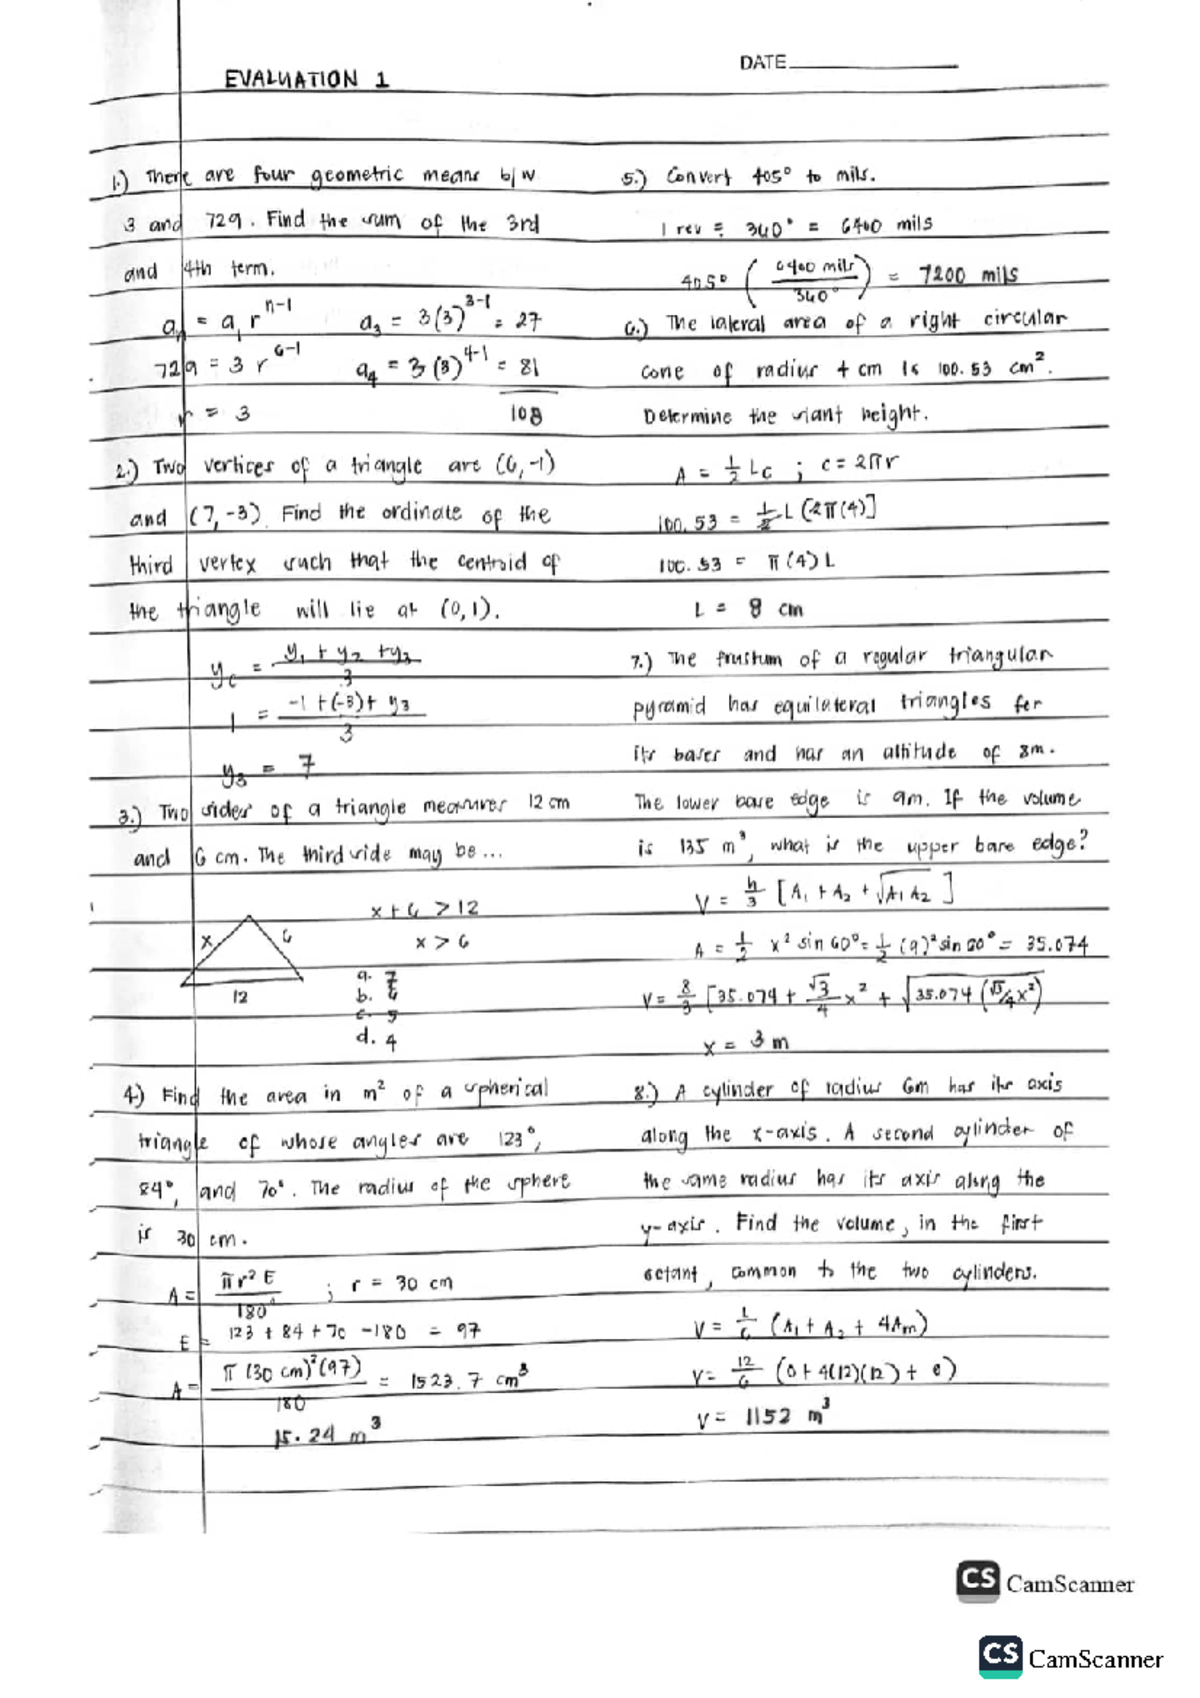 DATE
EVALUATION 1
1.) There are four geometric means b/w
3 and 729. Find the sum of the 3rd
and 4th term.
aₙ = a₁ r^(n-1)    a₃ = 3(3)^(3-1) = 27
729 = 3 r^(6-1)    a₄ = 3(3)^(4-1) = 81
r = 3    108
2.) Two vertices of a triangle are (6,-1)
and (7,-3). Find the ordinate of the
third vertex such that the centroid of
the triangle will lie at (0,1).
y_c = (y₁ + y₂ + y₃)/3
1 = (-1 + (-3) + y₃)/3
y₃ = 7
3.) Two sides of a triangle measures 12 cm
and 6 cm. The third side may be ...
x + 6 > 12
x > 6
x 6
12
a. 7
b. 6
c. 5
d. 4
4.) Find the area in m² of a spherical
triangle of whose angles are 123°,
84°, and 70°. The radius of the sphere
is 30 cm.
A = πr²E/180° ; r = 30 cm
E = 123 + 84 + 70 - 180 = 97
A = π(30 cm)²(97)/180 = 1523.7 cm³
15.24 m³
5.) Convert 405° to mils.
1 rev = 360° = 6400 mils
405° (6400 mils/360°) = 7200 mils
6.) The lateral area of a right circular
cone of radius 4 cm is 100.53 cm².
Determine the slant height.
A = 1/2 Lc ; c = 2πr
100.53 = 1/2 L [2π(4)]
100.53 = π(4)L
L = 8 cm
7.) The frustum of a regular triangular
pyramid has equilateral triangles for
its bases and has an altitude of 8m.
The lower base edge is 9m. If the volume
is 135 m³, what is the upper base edge?
V = h/3 [A₁ + A₂ + √(A₁A₂)]
A = 1/2 x² sin 60° = 1/2 (9)² sin 60° = 35.074
V = 8/3 [35.074 + √3/4 x² + √(35.074 (√3/4 x²)
x = 3 m
8.) A cylinder of radius 6m has its axis
along the x-axis. A second cylinder of
the same radius has its axis along the
y-axis. Find the volume, in the first
octant, common to the two cylinders.
V = 1/6 (A₁ + A₂ + 4Am)
V = 12/6 (0 + 4(12)(12) + 0)
V = 1152 m³
CS CamScanner
CS CamScanner